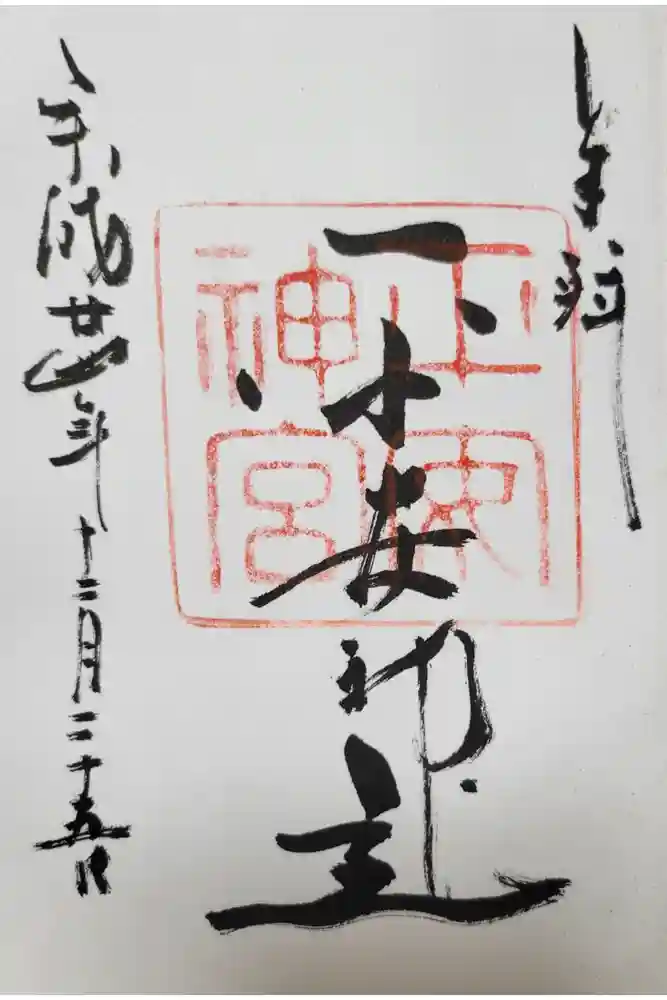 奉拝
平安神宮
平安神宮
平成廿四年十二月二十五日